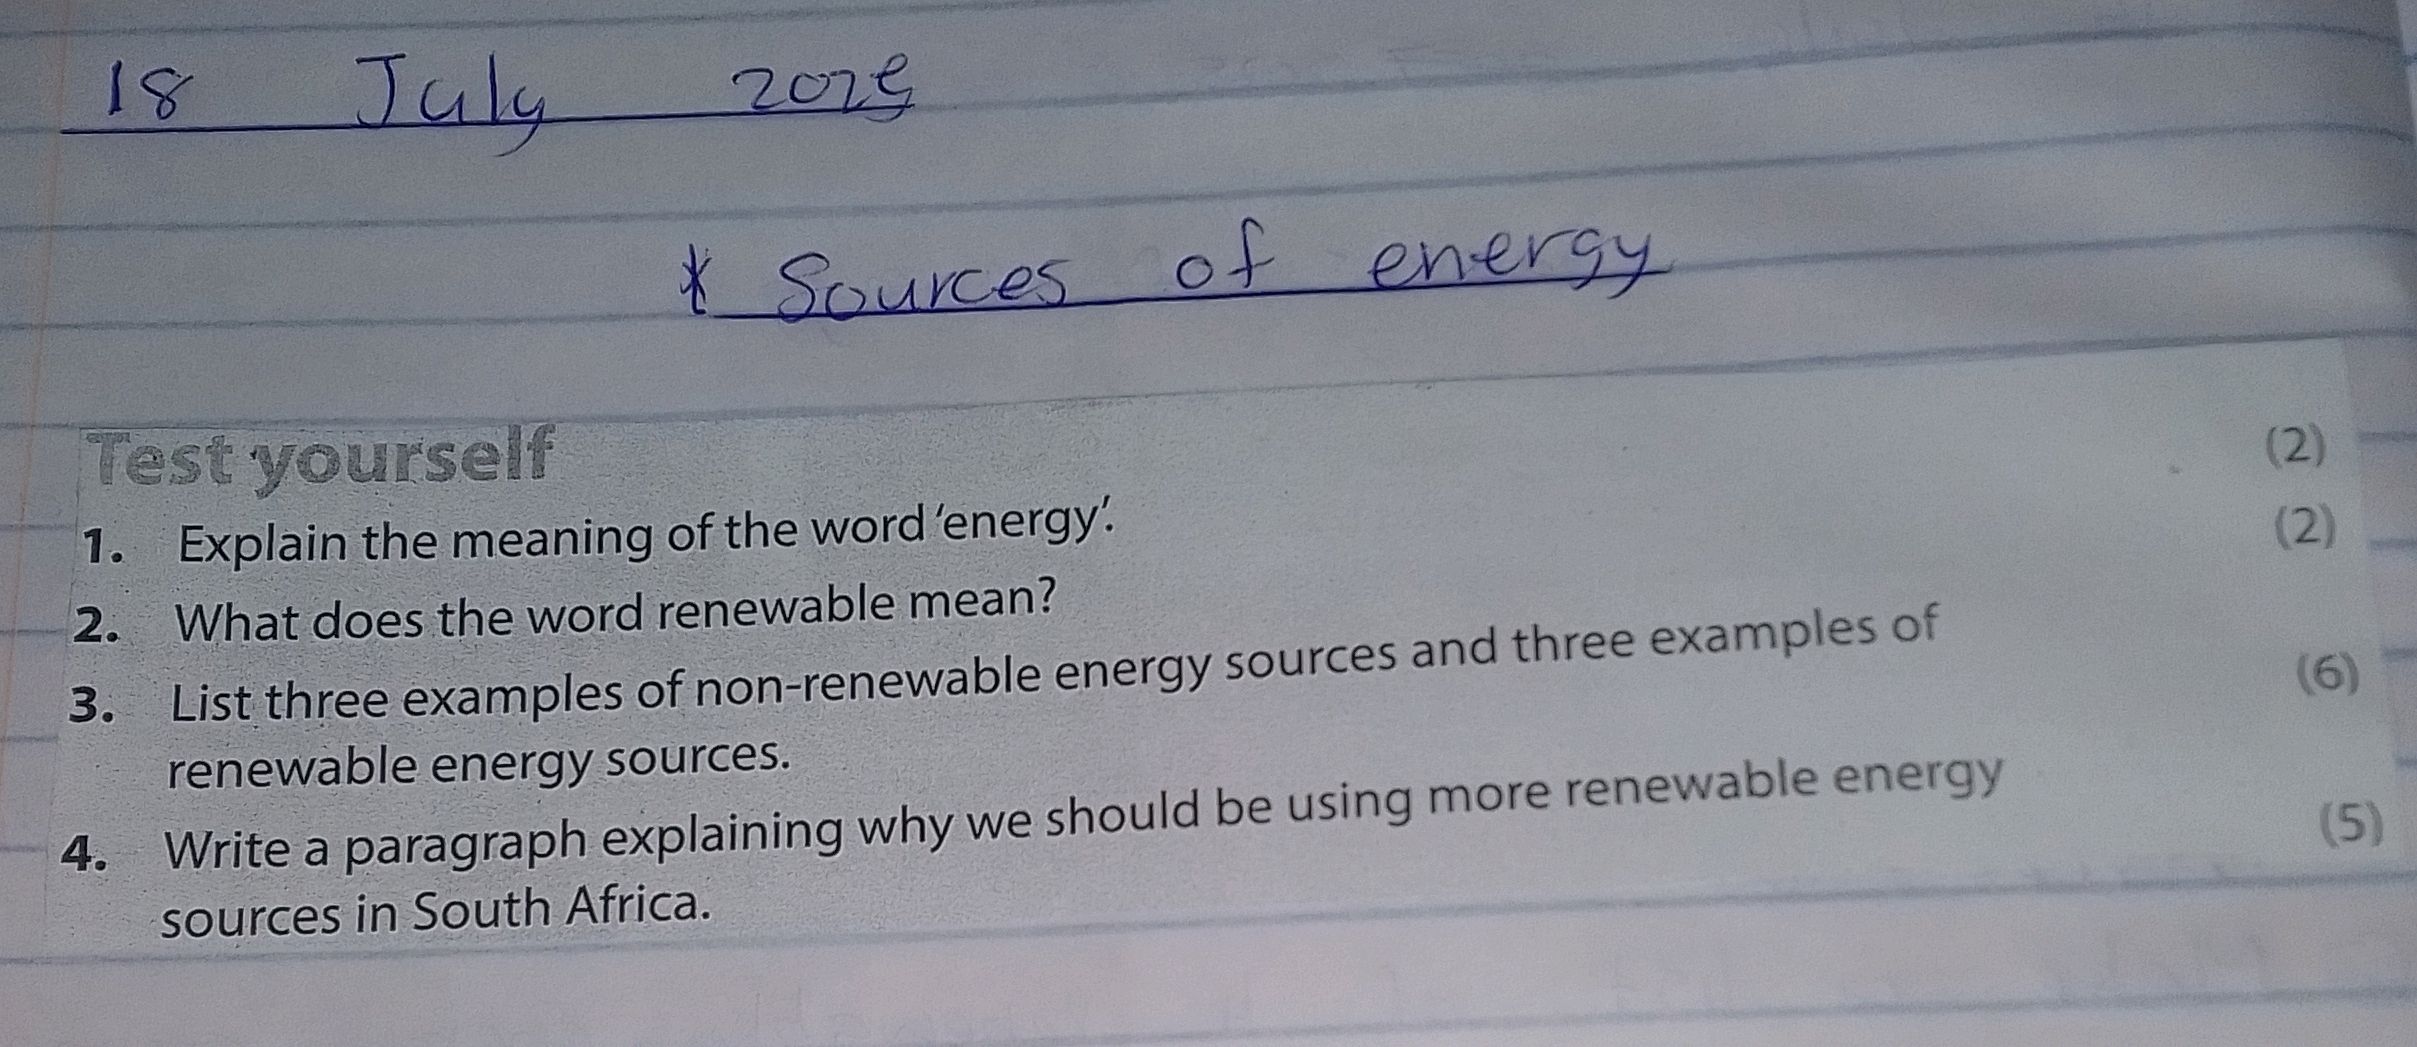 18 July 2025
* Sources of energy
Test yourself
1. Explain the meaning of the word 'energy'. (2)
2. What does the word renewable mean? (2)
3. List three examples of non-renewable energy sources and three examples of
renewable energy sources. (6)
4. Write a paragraph explaining why we should be using more renewable energy
sources in South Africa. (5)